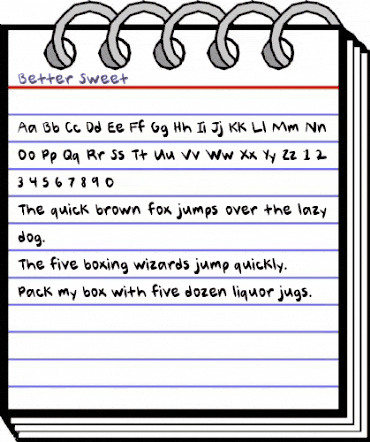 Better Sweet
Aa Bb Cc Dd Ee Ff Gg Hh Ii Jj Kk Ll Mm Nn
Oo Pp Qq Rr Ss Tt Uu Vv Ww Xx Yy Zz 1 2
3 4 5 6 7 8 9 0
The quick brown fox jumps over the lazy
dog.
The five boxing wizards jump quickly.
Pack my box with five dozen liquor jugs.